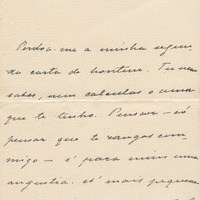 Perdoa-me a minha segun-
da carta de hontem. Tu nem
sabes, nem calculas o amor
que te tenho. Pensar — só
pensar que te zangas com-
migo — é para mim uma
angustia. A mais pequena